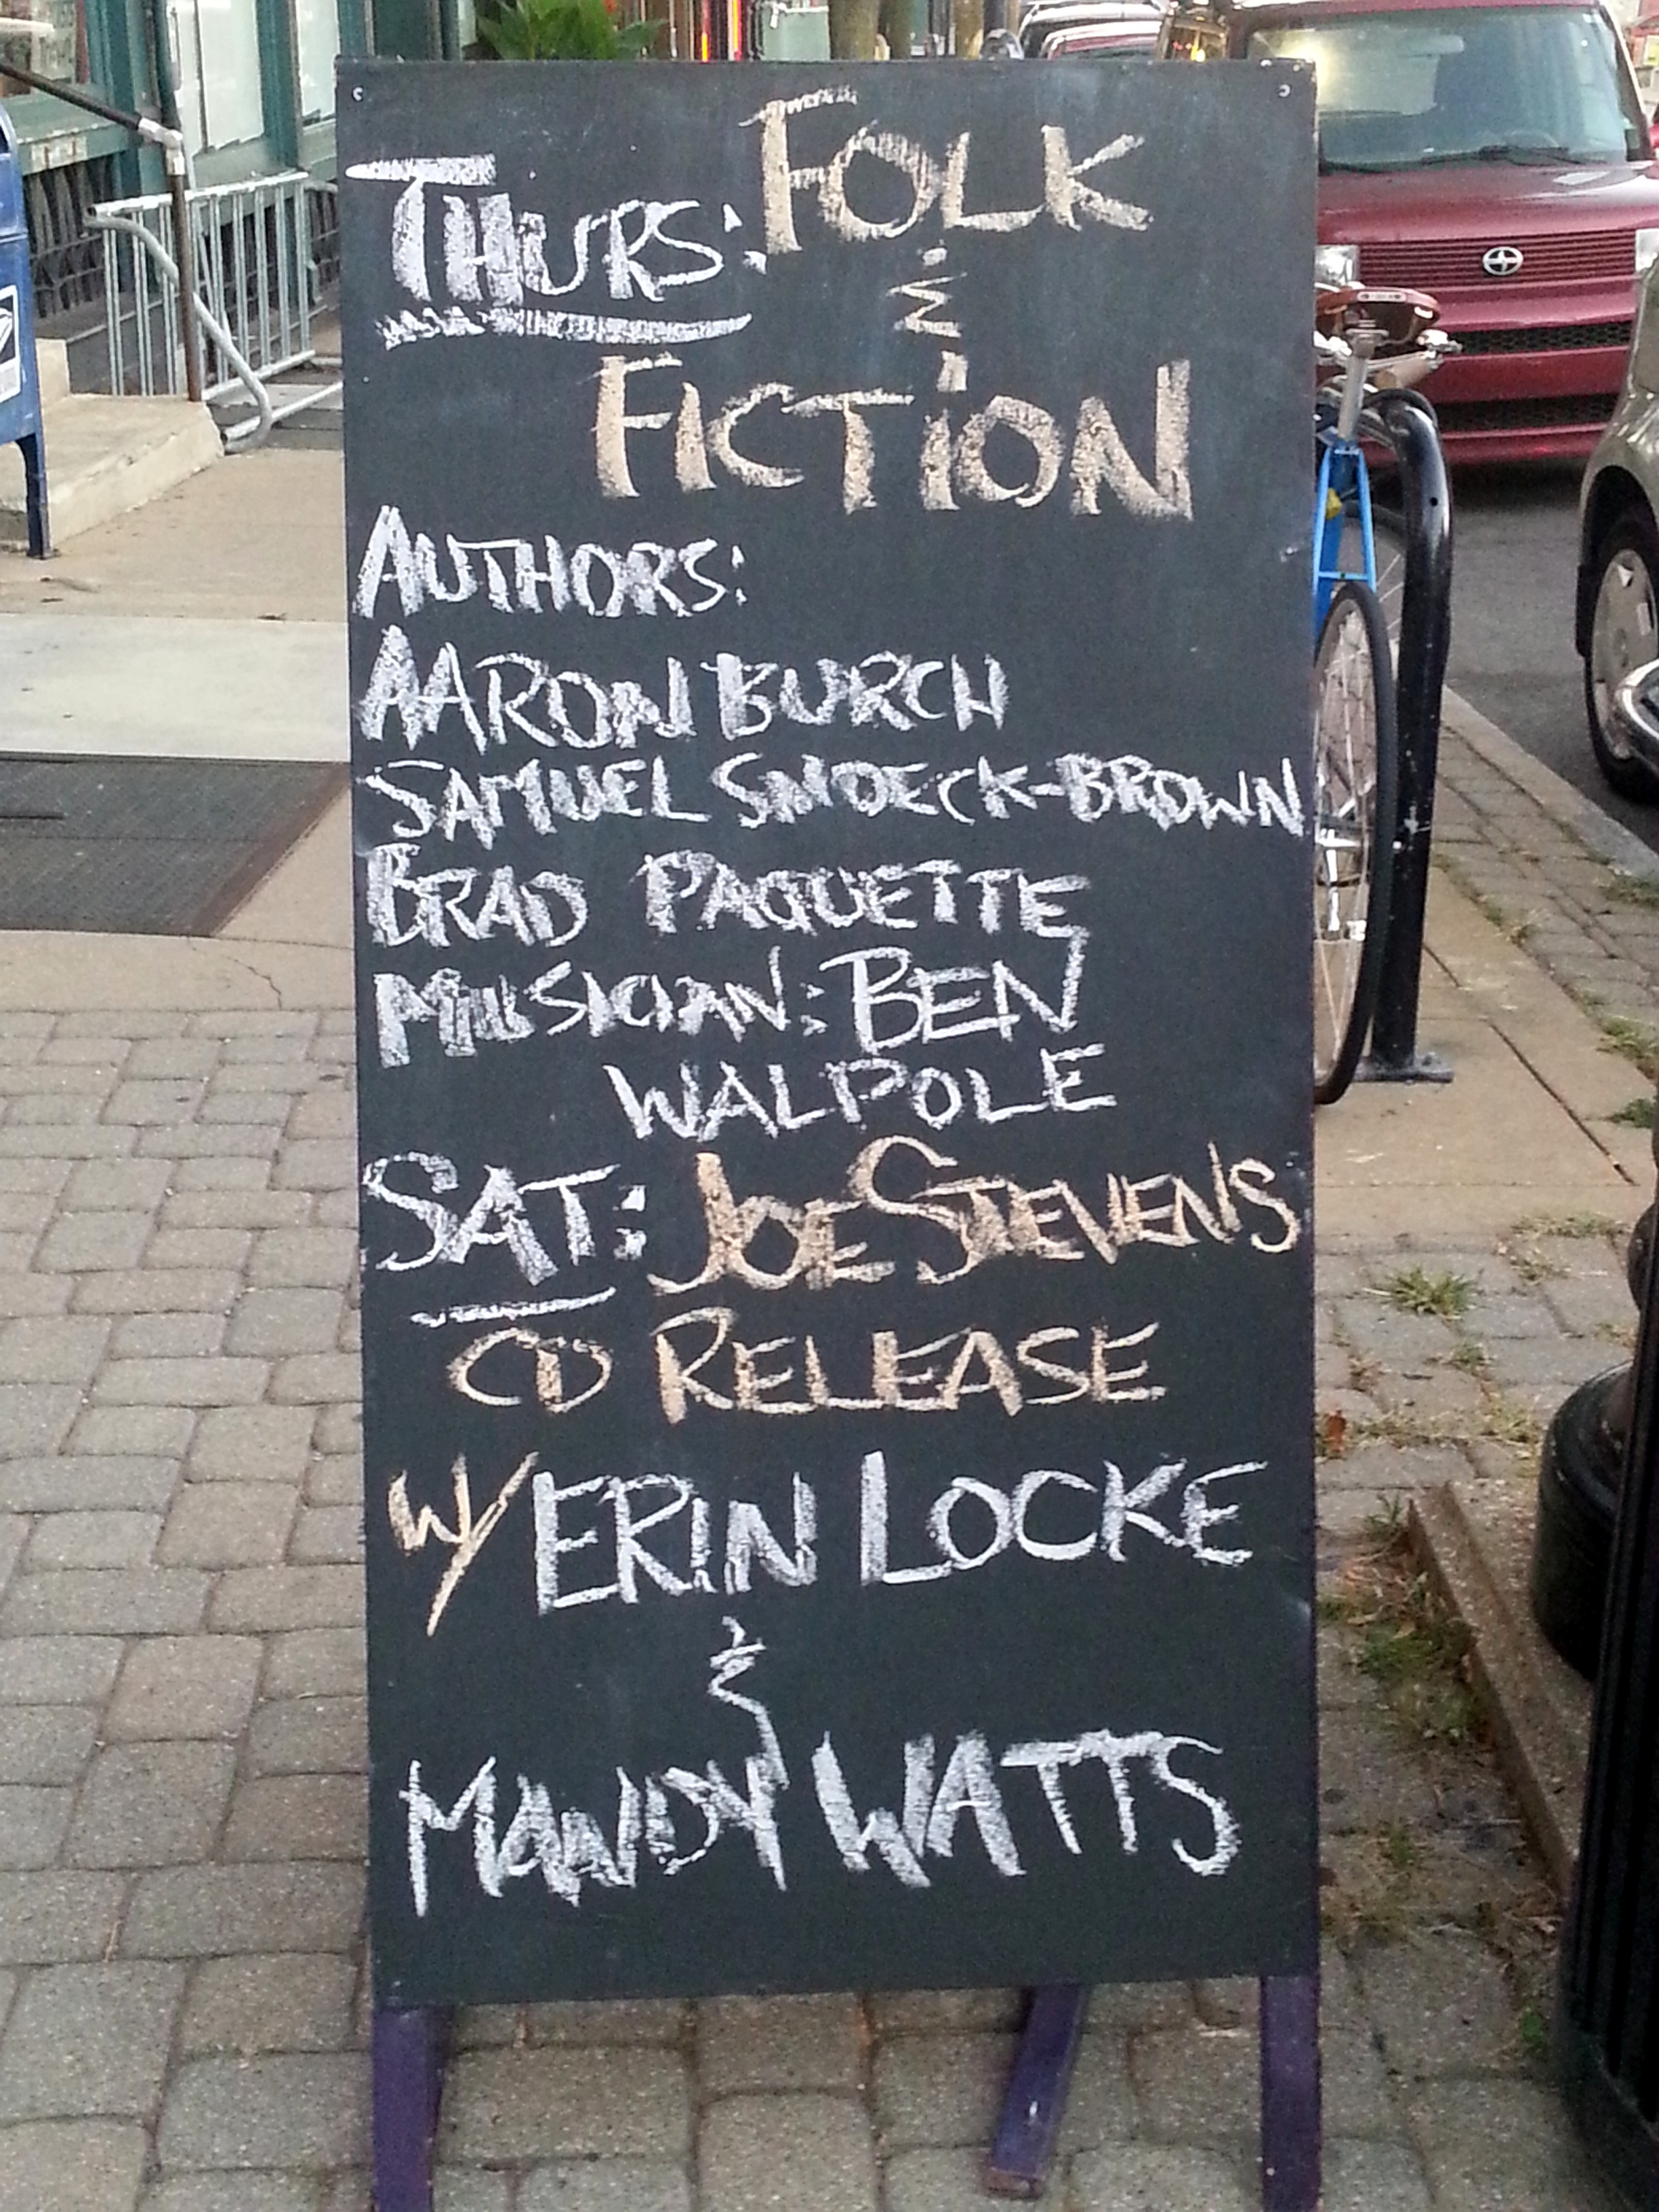 THURS: FOLK
&
FICTION
AUTHORS:
AARON BURCH
SAMUEL SNOECK-BROWN
BRAD PAQUETTE
MUSICIAN: BEN
WALPOLE
SAT: JOE STEVENS
CD RELEASE
W/ ERIN LOCKE
&
MANDY WATTS